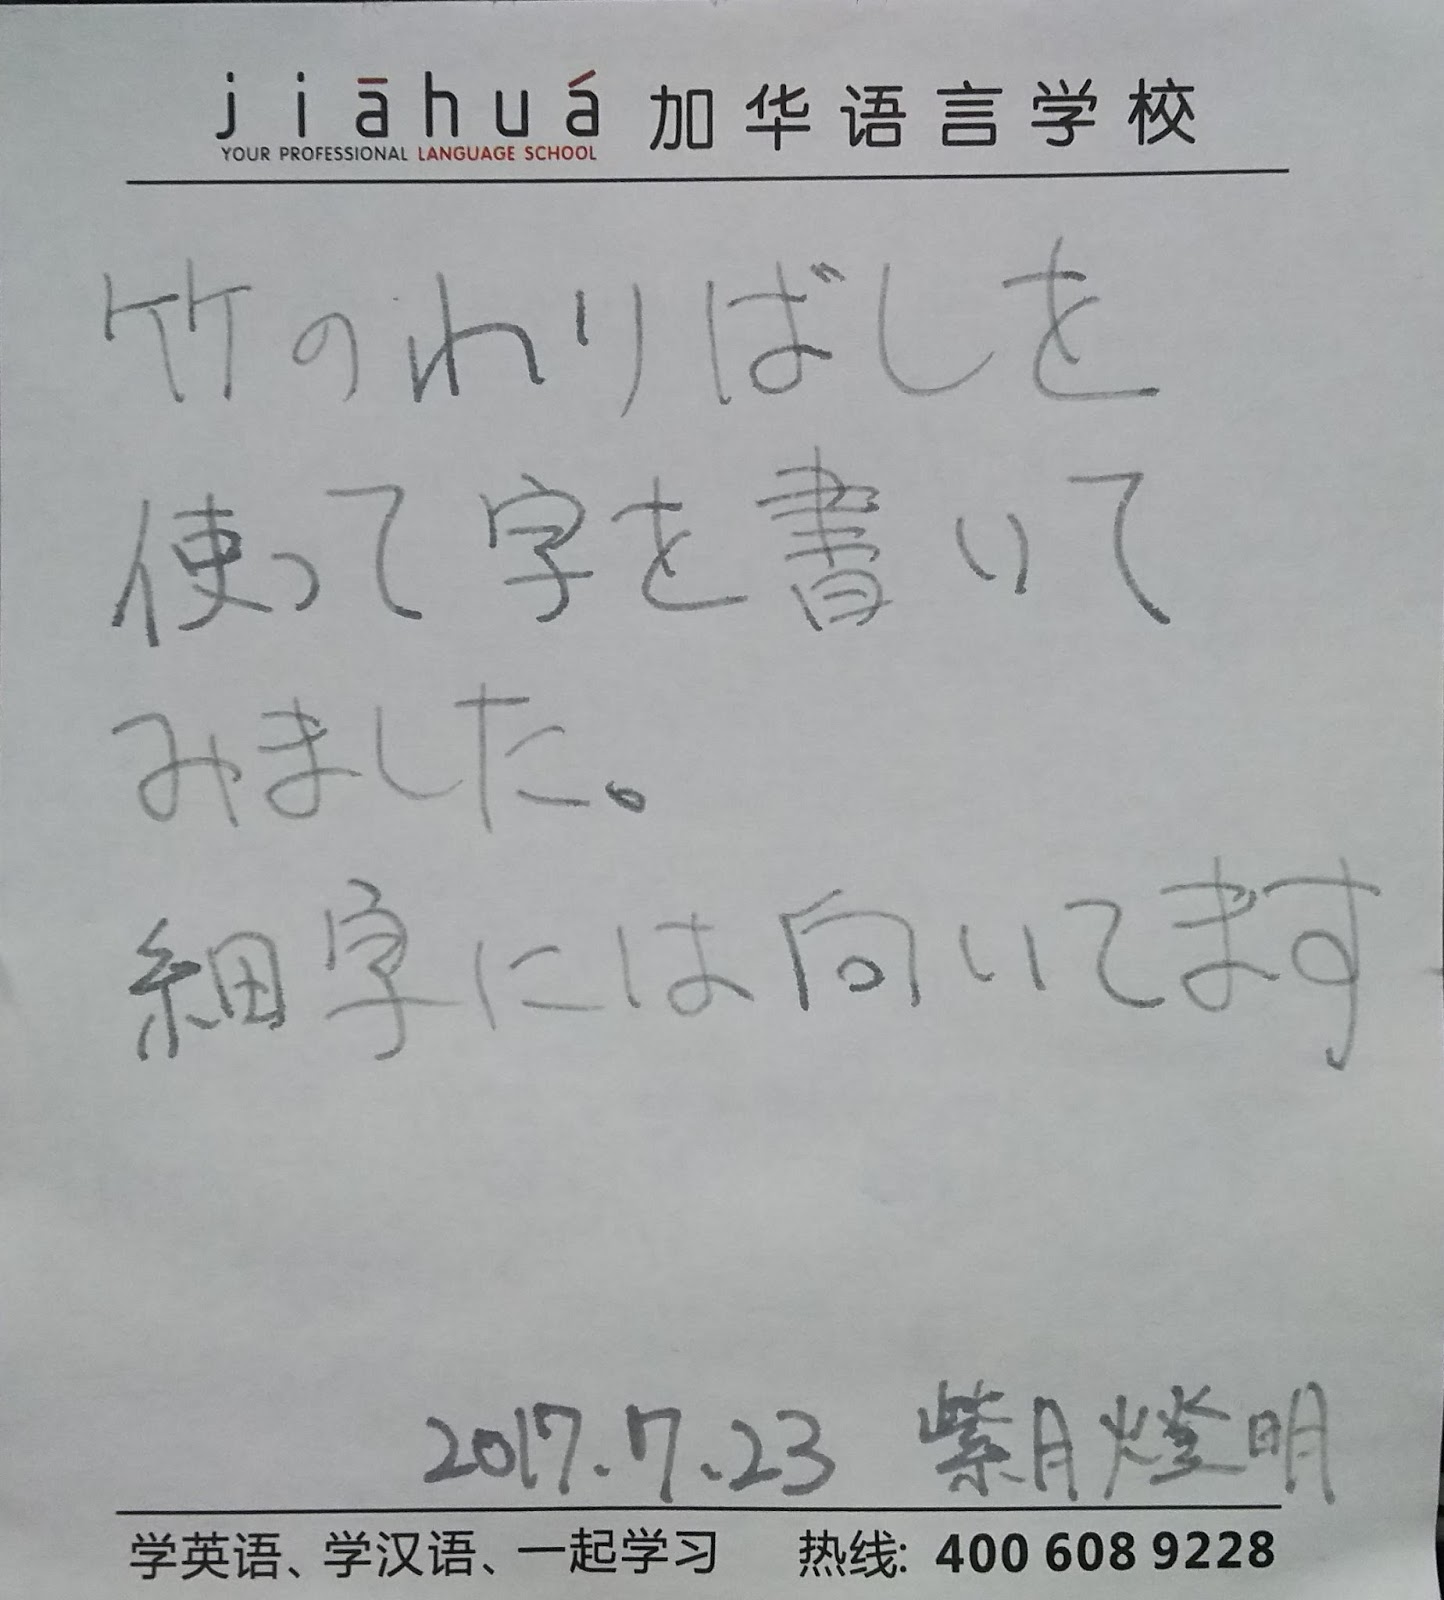 jiāhuá 加华语言学校
YOUR PROFESSIONAL LANGUAGE SCHOOL
竹のわりばしを
使って字を書いて
みました。
細字には向いてます
2017.7.23 紫月燈明
学英语、学汉语、一起学习 热线: 400 608 9228